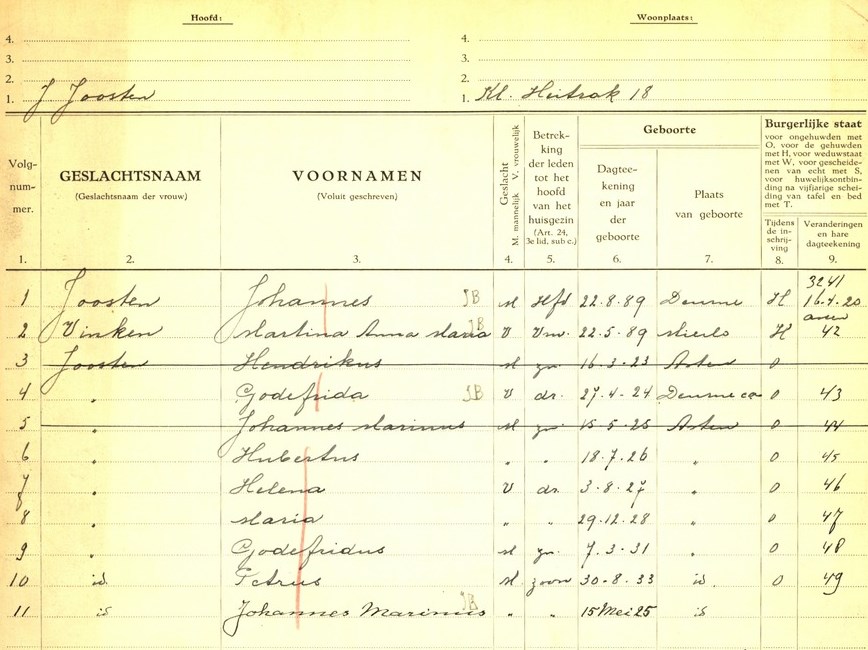 Hoofd: Woonplaats:
4. 4.
3. 3.
2. 2.
1. J Joosten 1. Kl. Heitrak 18
Volg-
num-
mer.
GESLACHTSNAAM
(Geslachtsnaam der vrouw)
VOORNAMEN
(Voluit geschreven)
Geslacht
M. mannelijk V. vrouwelijk
Betrek-
king
der leden
tot het
hoofd
van het
huisgezin
(Art. 24,
3e lid, sub c.)
Geboorte
Dagtee-
kening
en jaar
der
geboorte
Plaats
van geboorte
Burgerlijke staat
voor ongehuwden met
O, voor de gehuwden
met H, voor weduwstaat
met W, voor gescheide-
nen van echt met S,
voor huwelijksontbin-
ding na vijfjarige schei-
ding van tafel en bed
met T.
Tijdens
de in-
schrij-
ving
Veranderingen
en hare
dagteekening
1. 2. 3. 4. 5. 6. 7. 8. 9.
3241
1 Joosten Johannes JB M Hfd 22.8.89 Deurne H 16.4.20
2 Vinken Martina Anna Maria JB V Vrw. 22.5.89 Mierlo H 42
3 Joosten Hendrikus M zn. 16.3.23 Asten O
4 " Godefrida JB V dr. 27.4.24 Deurne O 43
5 " Johannes Marinus M zn. 15.5.25 Asten O 44
6 " Hubertus " " 18.7.26 " O 45
7 " Helena V dr. 3.8.27 " O 46
8 " Maria " " 29.12.28 " O 47
9 " Godefridus M zn. 7.3.31 " O 48
10 id. Petrus M zoon 30.8.33 id. O 49
11 id Johannes Marinus JB " " 15 Mei 25 id